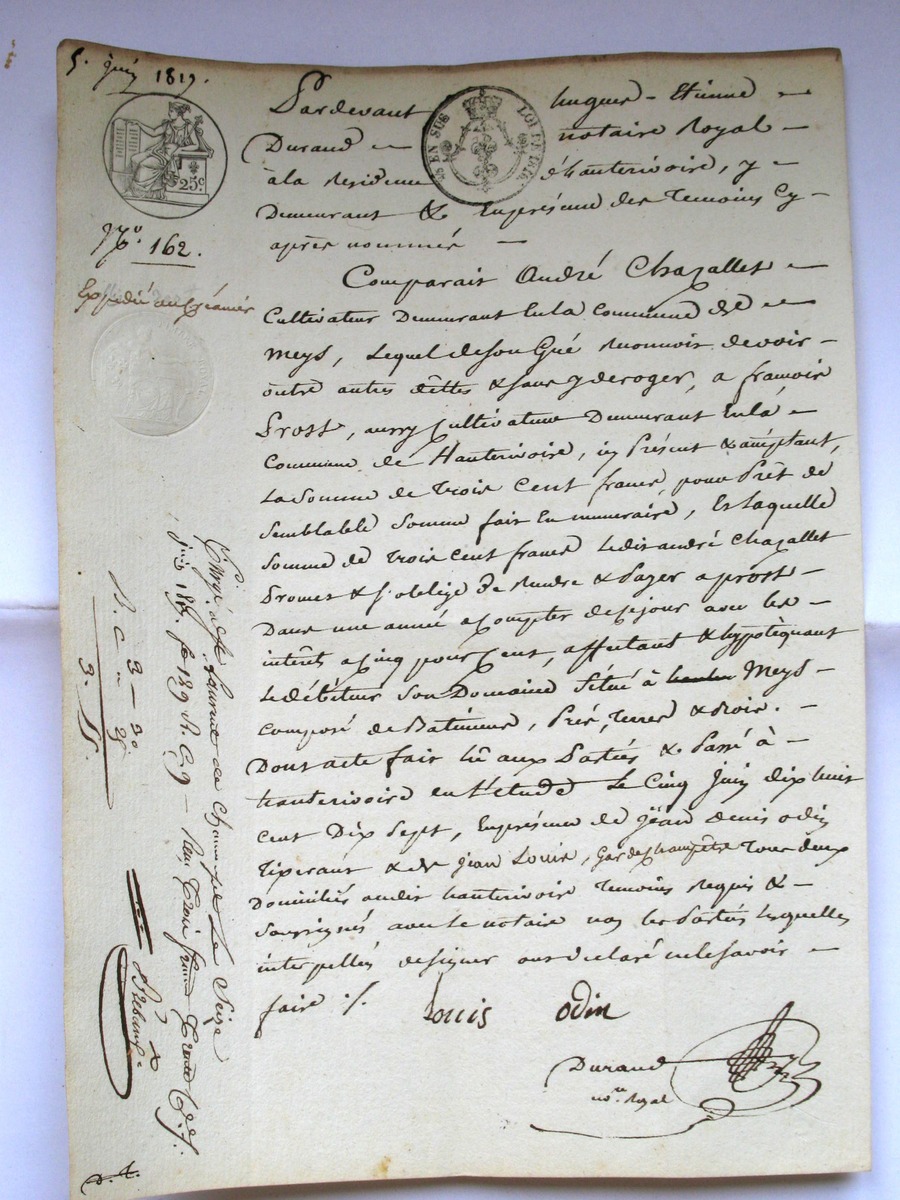 5. juin 1817.
25c
EN SUS
LOI DE 1816.
No. 162.
Expedié au Créancier
Pardevant hugues - Etienne
Durand notaire Royal
à la Residence d'hauterivoire, y
Demeurant & Enpresence des Temoins Cy-
après nommés
Comparait André Chazallet
Cultivateur Demeurant Enla Commune de
Meys, Lequel deson Gré Reconnoit devoir
outre autres dettes & sans y deroger, a francois
Prost, aussy Cultivateur Demeurant Enla
Commune de Hauterivoire, icy Présent & acceptant,
La Somme de Trois Cent francs, pour Prêt de
Semblable Somme fait En numeraire, Laquelle
Somme de Trois Cent francs Ledit andré Chazallet
Promet & s'oblige De Rendre & Payer a prost
Dans une année a Compter de ce jour avec les
intérêts a Cinq pour Cent, affectant & hypotèquant
Le débiteur Son Domaine Situé à Meys
Composé de Batiments, Prés, Terres & Bois.
Dont acte fait Lû aux Parties & Passé à
hauterivoire en L'etude Le Cinq Juin dix huit
Cent Dix Sept, Enpresence de Jean Denis odin
Tixerant & de Jean Louis, Gardechampêtre Tous deux
Domiciliés audit hauterivoire Temoins Requis &
Soussignés avec Le notaire non les Parties Lesquelles
interpellées de signer ont declaré ne le savoir
faire ./.
Louis odin
Durand
nore. Royal
St. Laurent de Chamousset Le Seize
juin 1817. fo 189 R. C. 9 Reçu Trois francs Trente Ces.
R. 3 - 30
C. 25
3. 55